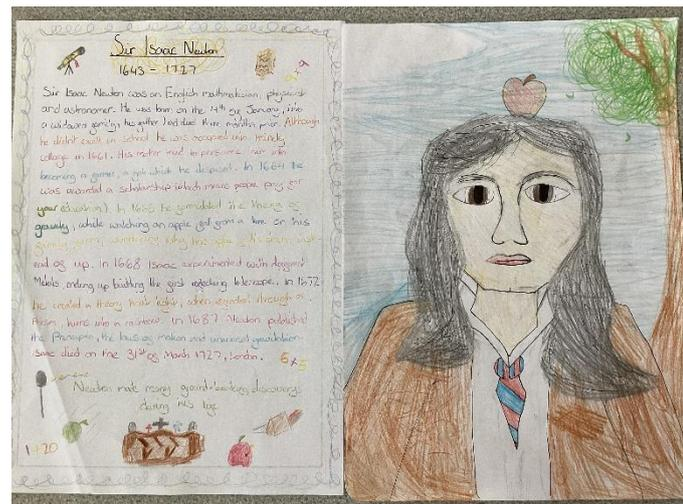 Sir Isaac Newton
1643 - 1727
Sir Isaac Newton was an English mathematician, physicist
and astronomer. He was born on the 4th of January, into
a widowed family, his father had died three months prior. Although
he didn't excell in school he was accepted into trinity
collage in 1661. His mother tried to persuade him into
becoming a farmer, a job which he despised. In 1664 he
was awarded a scholarship which means people pay for
your education). In 1665 he formulated the theory of
gravity, while watching an apple fall from a tree on his
family farm, wondering why the apple fell down, not
end of up. In 1668 Isaac experimented with different
Metals, ending up building the first reflecting telescope. In 1672
he created a theory that light, when refracted through a
Prism, turns into a rainbow. In 1687 Newton published
the Principia, the laws of motion and universal gravitation.
Isaac died on the 31st of March 1727, London.
6x5
Newton made many ground-breaking discoverys
during his life
1+20